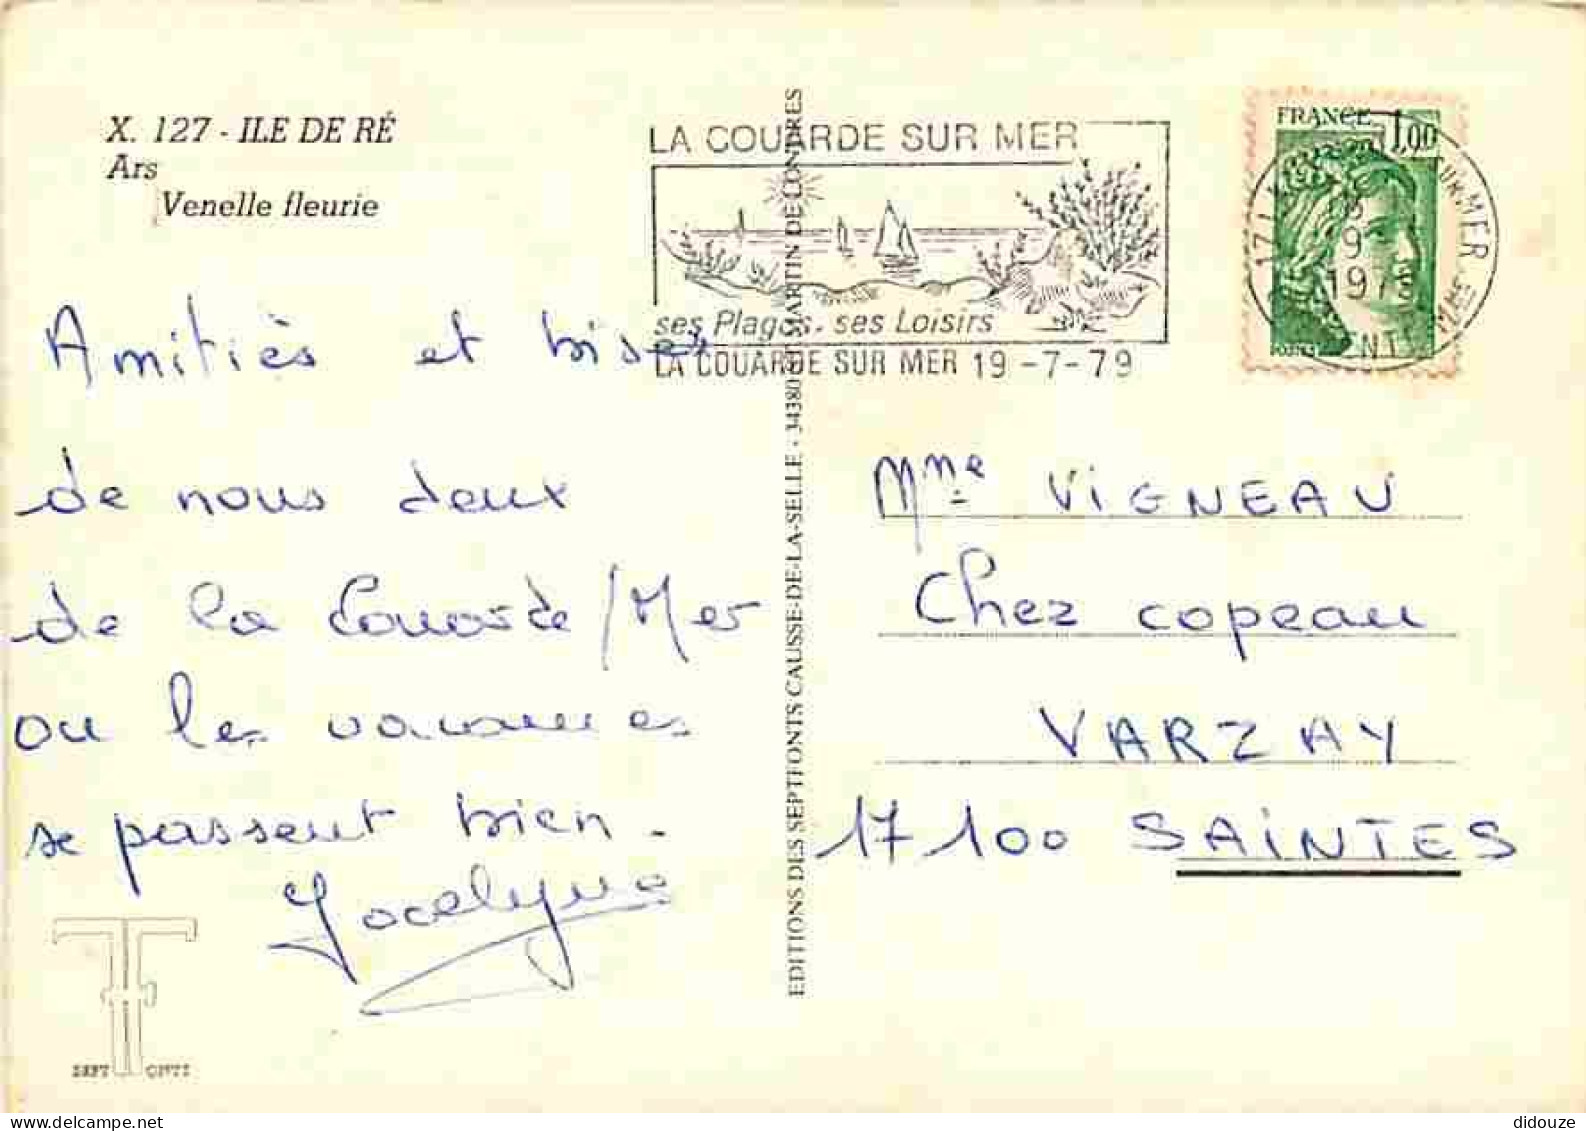 X. 127 - ILE DE RÉ
Ars
Venelle fleurie
LA COUARDE SUR MER
ses Plages, ses Loisirs
LA COUARDE SUR MER 19 -7-79
FRANCE 1,00
SUR MER
9
197
Amitiés et bises
de nous deux
de la Couarde/Mer
ou les vacances
se passent bien.
Jocelyne
EDITIONS DES SEPTFONTS CAUSSE-DE-LA-SELLE - 34380 ST MARTIN DE LONDRES
Mme VIGNEAU
Chez COPEAU
VARZAY
17100 SAINTES
SEPT FONTS
didouze